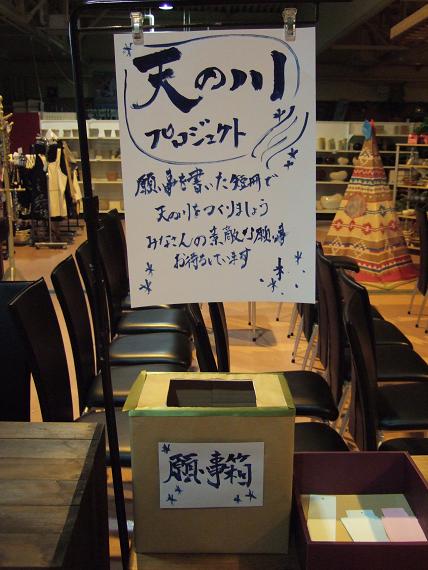 天の川
プロジェクト
願い事を書いた短冊で
天の川をつくりましょう
みなさんの素敵な願い事
お待ちしています
願い事箱